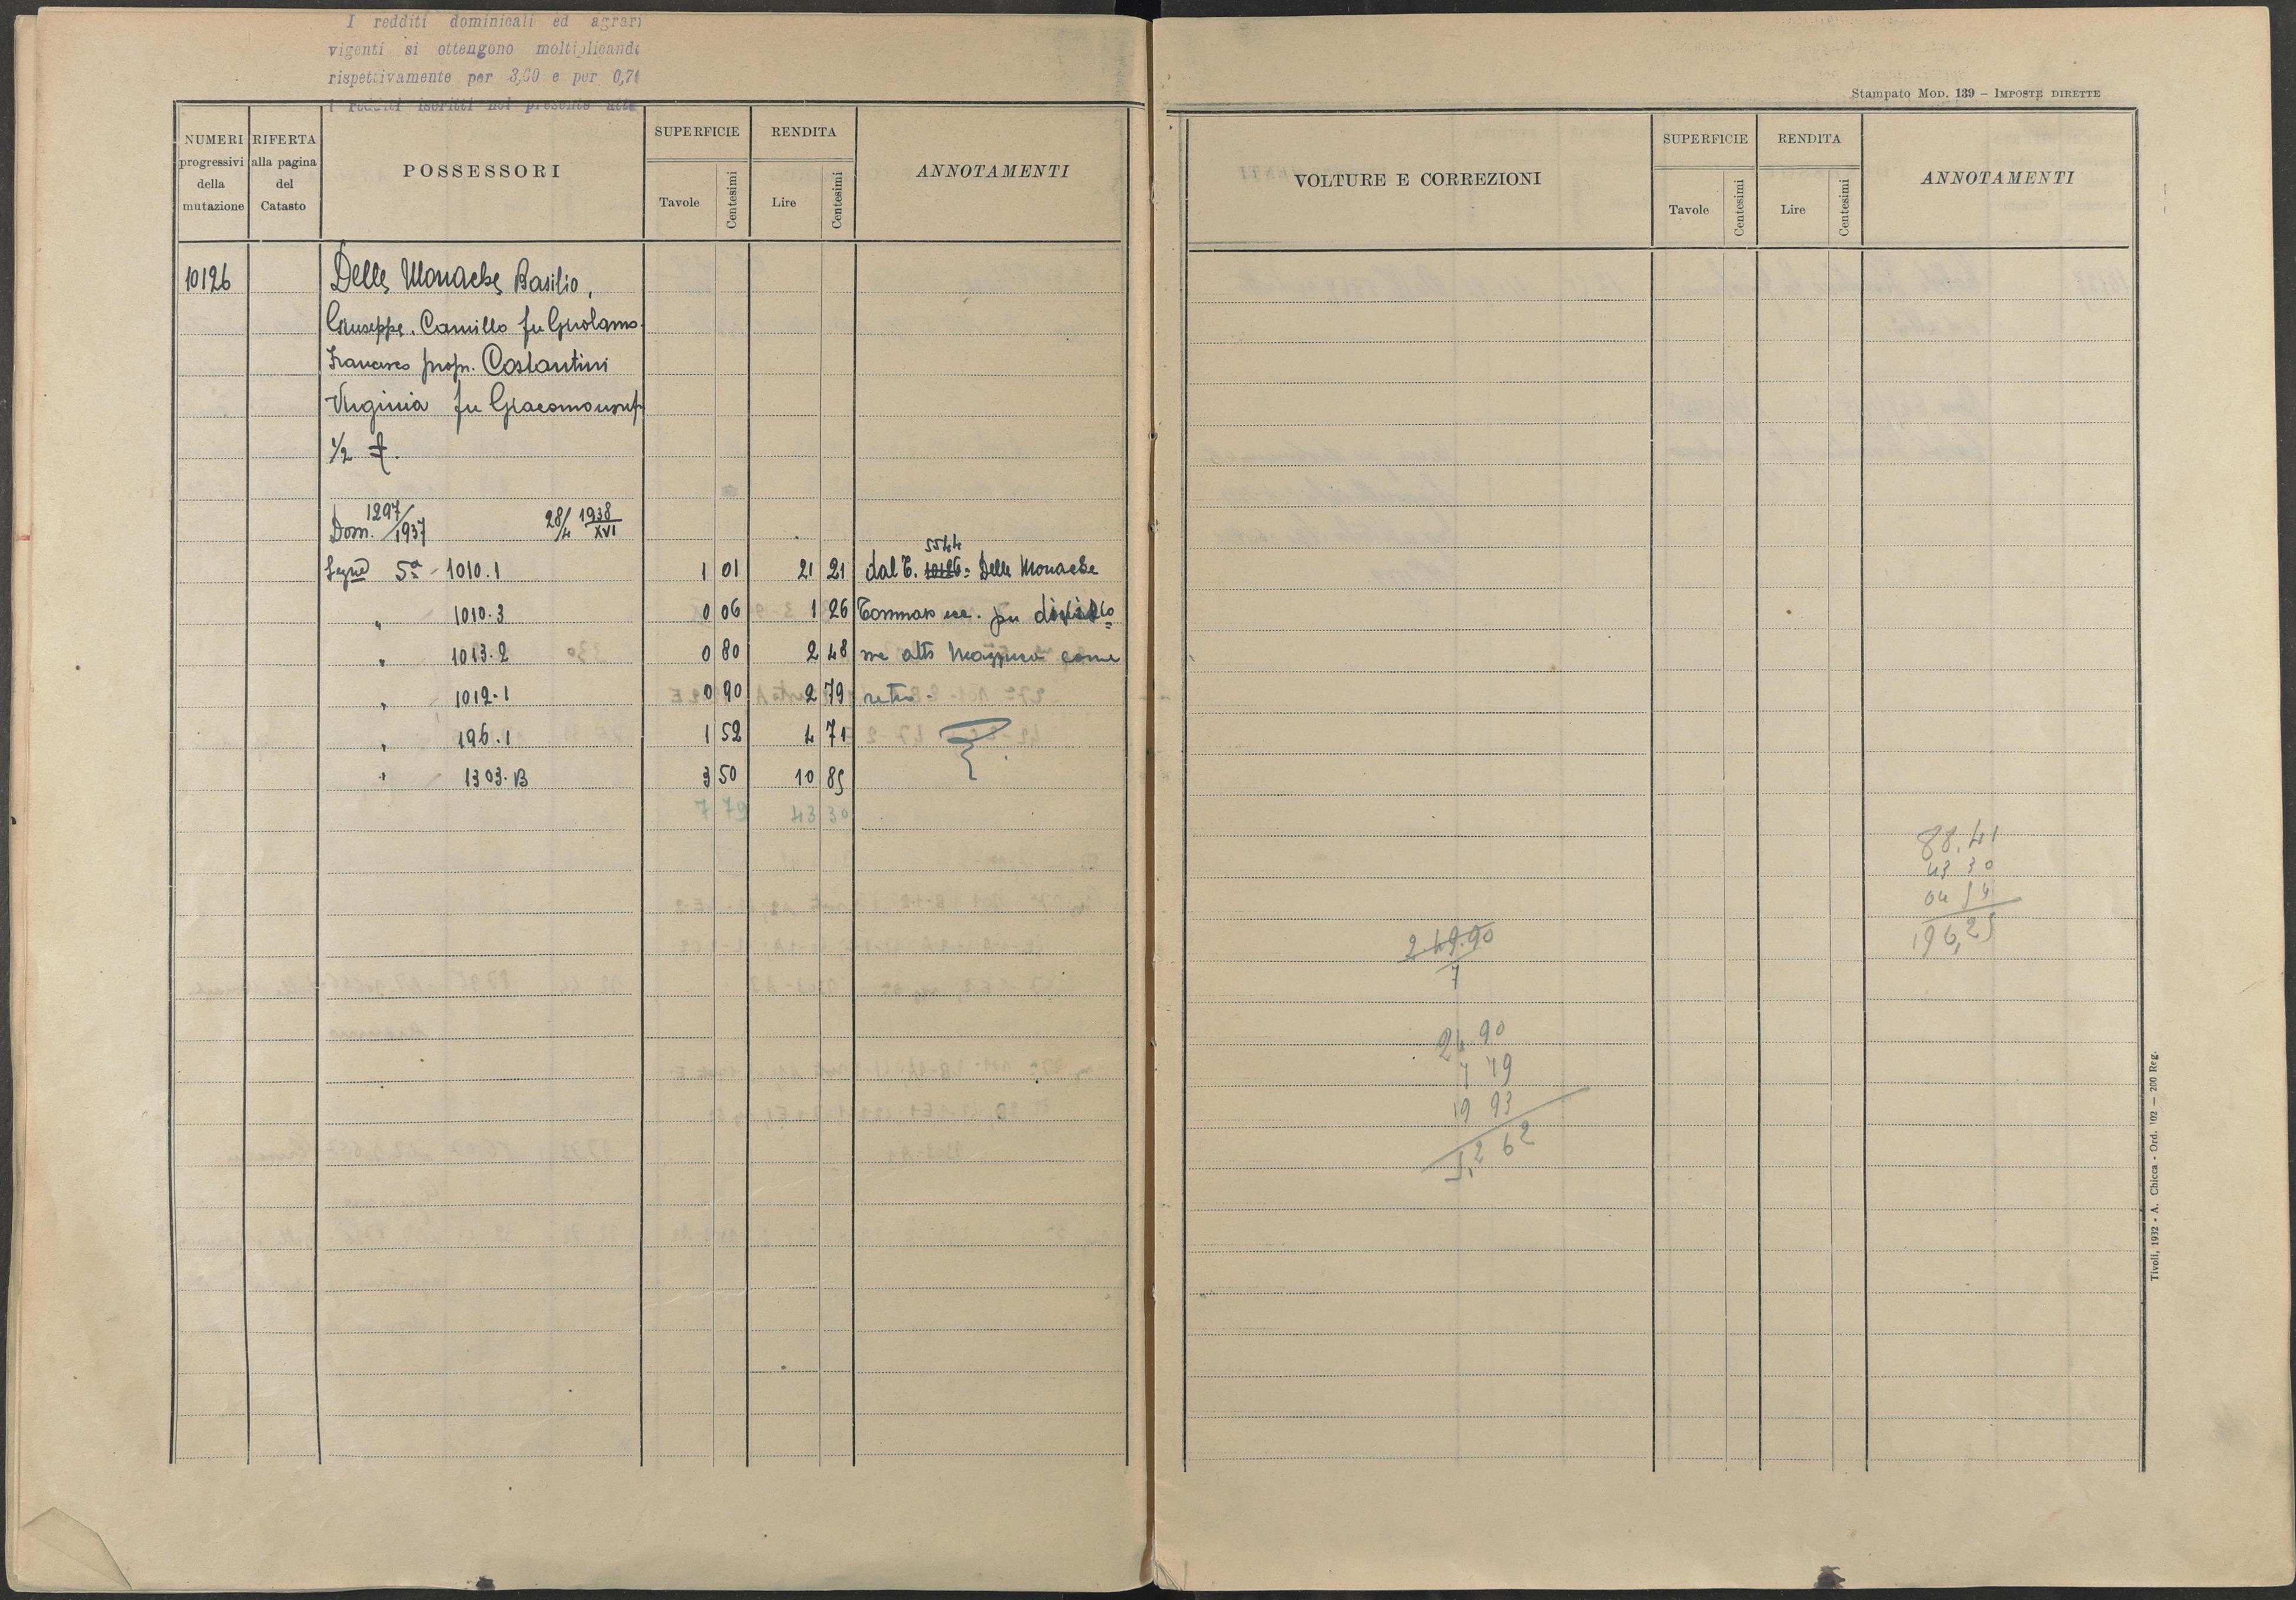 I redditi dominicali ed agrari
vigenti si ottengono moltiplicand
rispettivamente per 3,60 e per 0,7
i redditi iscritti nel presente atto
NUMERI progressivi della mutazione
RIFERTA alla pagina del Catasto
POSSESSORI
SUPERFICIE
Tavole Centesimi
RENDITA
Lire Centesimi
ANNOTAMENTI
10126 Delle Monache Basilio,
Giuseppe. Camillo fu Girolamo.
Francesco propr. Costantini
Virginia fu Giacomo usuf
1/2
Dom. 1297/1937 28/4 1938/XVI
Segne 5a 1010.1 1 01 21 21 dal C. 10126 5544 = Delle Monache
" 1010.3 0 06 1 26 Tommaso ecc. per
" 1013.2 0 80 2 48 atto come
" 1012.1 0 90 2 79 retro.
" 196.1 1 52 4 71
" 1303.B 3 50 10 85
7 79 43 30
Stampato MOD. 139 – IMPOSTE DIRETTE
VOLTURE E CORREZIONI
SUPERFICIE
Tavole Centesimi
RENDITA
Lire Centesimi
ANNOTAMENTI
88.41
43 30
64 54
196,25
2.49.90
7
24 90
7 79
19 93
5,2 62
Tivoli, 1932 - A. Chicca - Ord. 102 — 200 Reg.